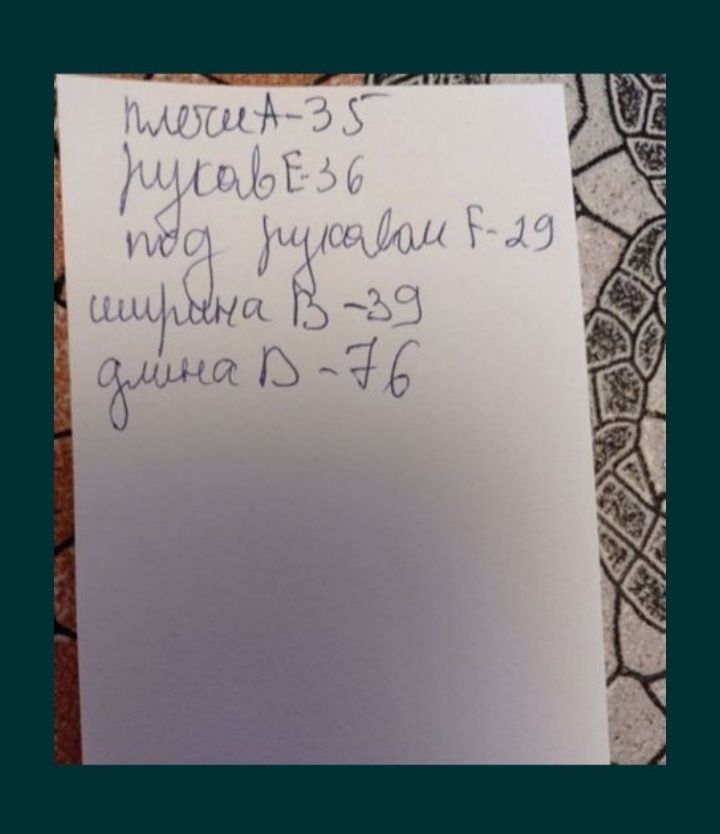 плечи А-35
рукав Е-36
под рукавом F-29
ширина В-39
длина D-76